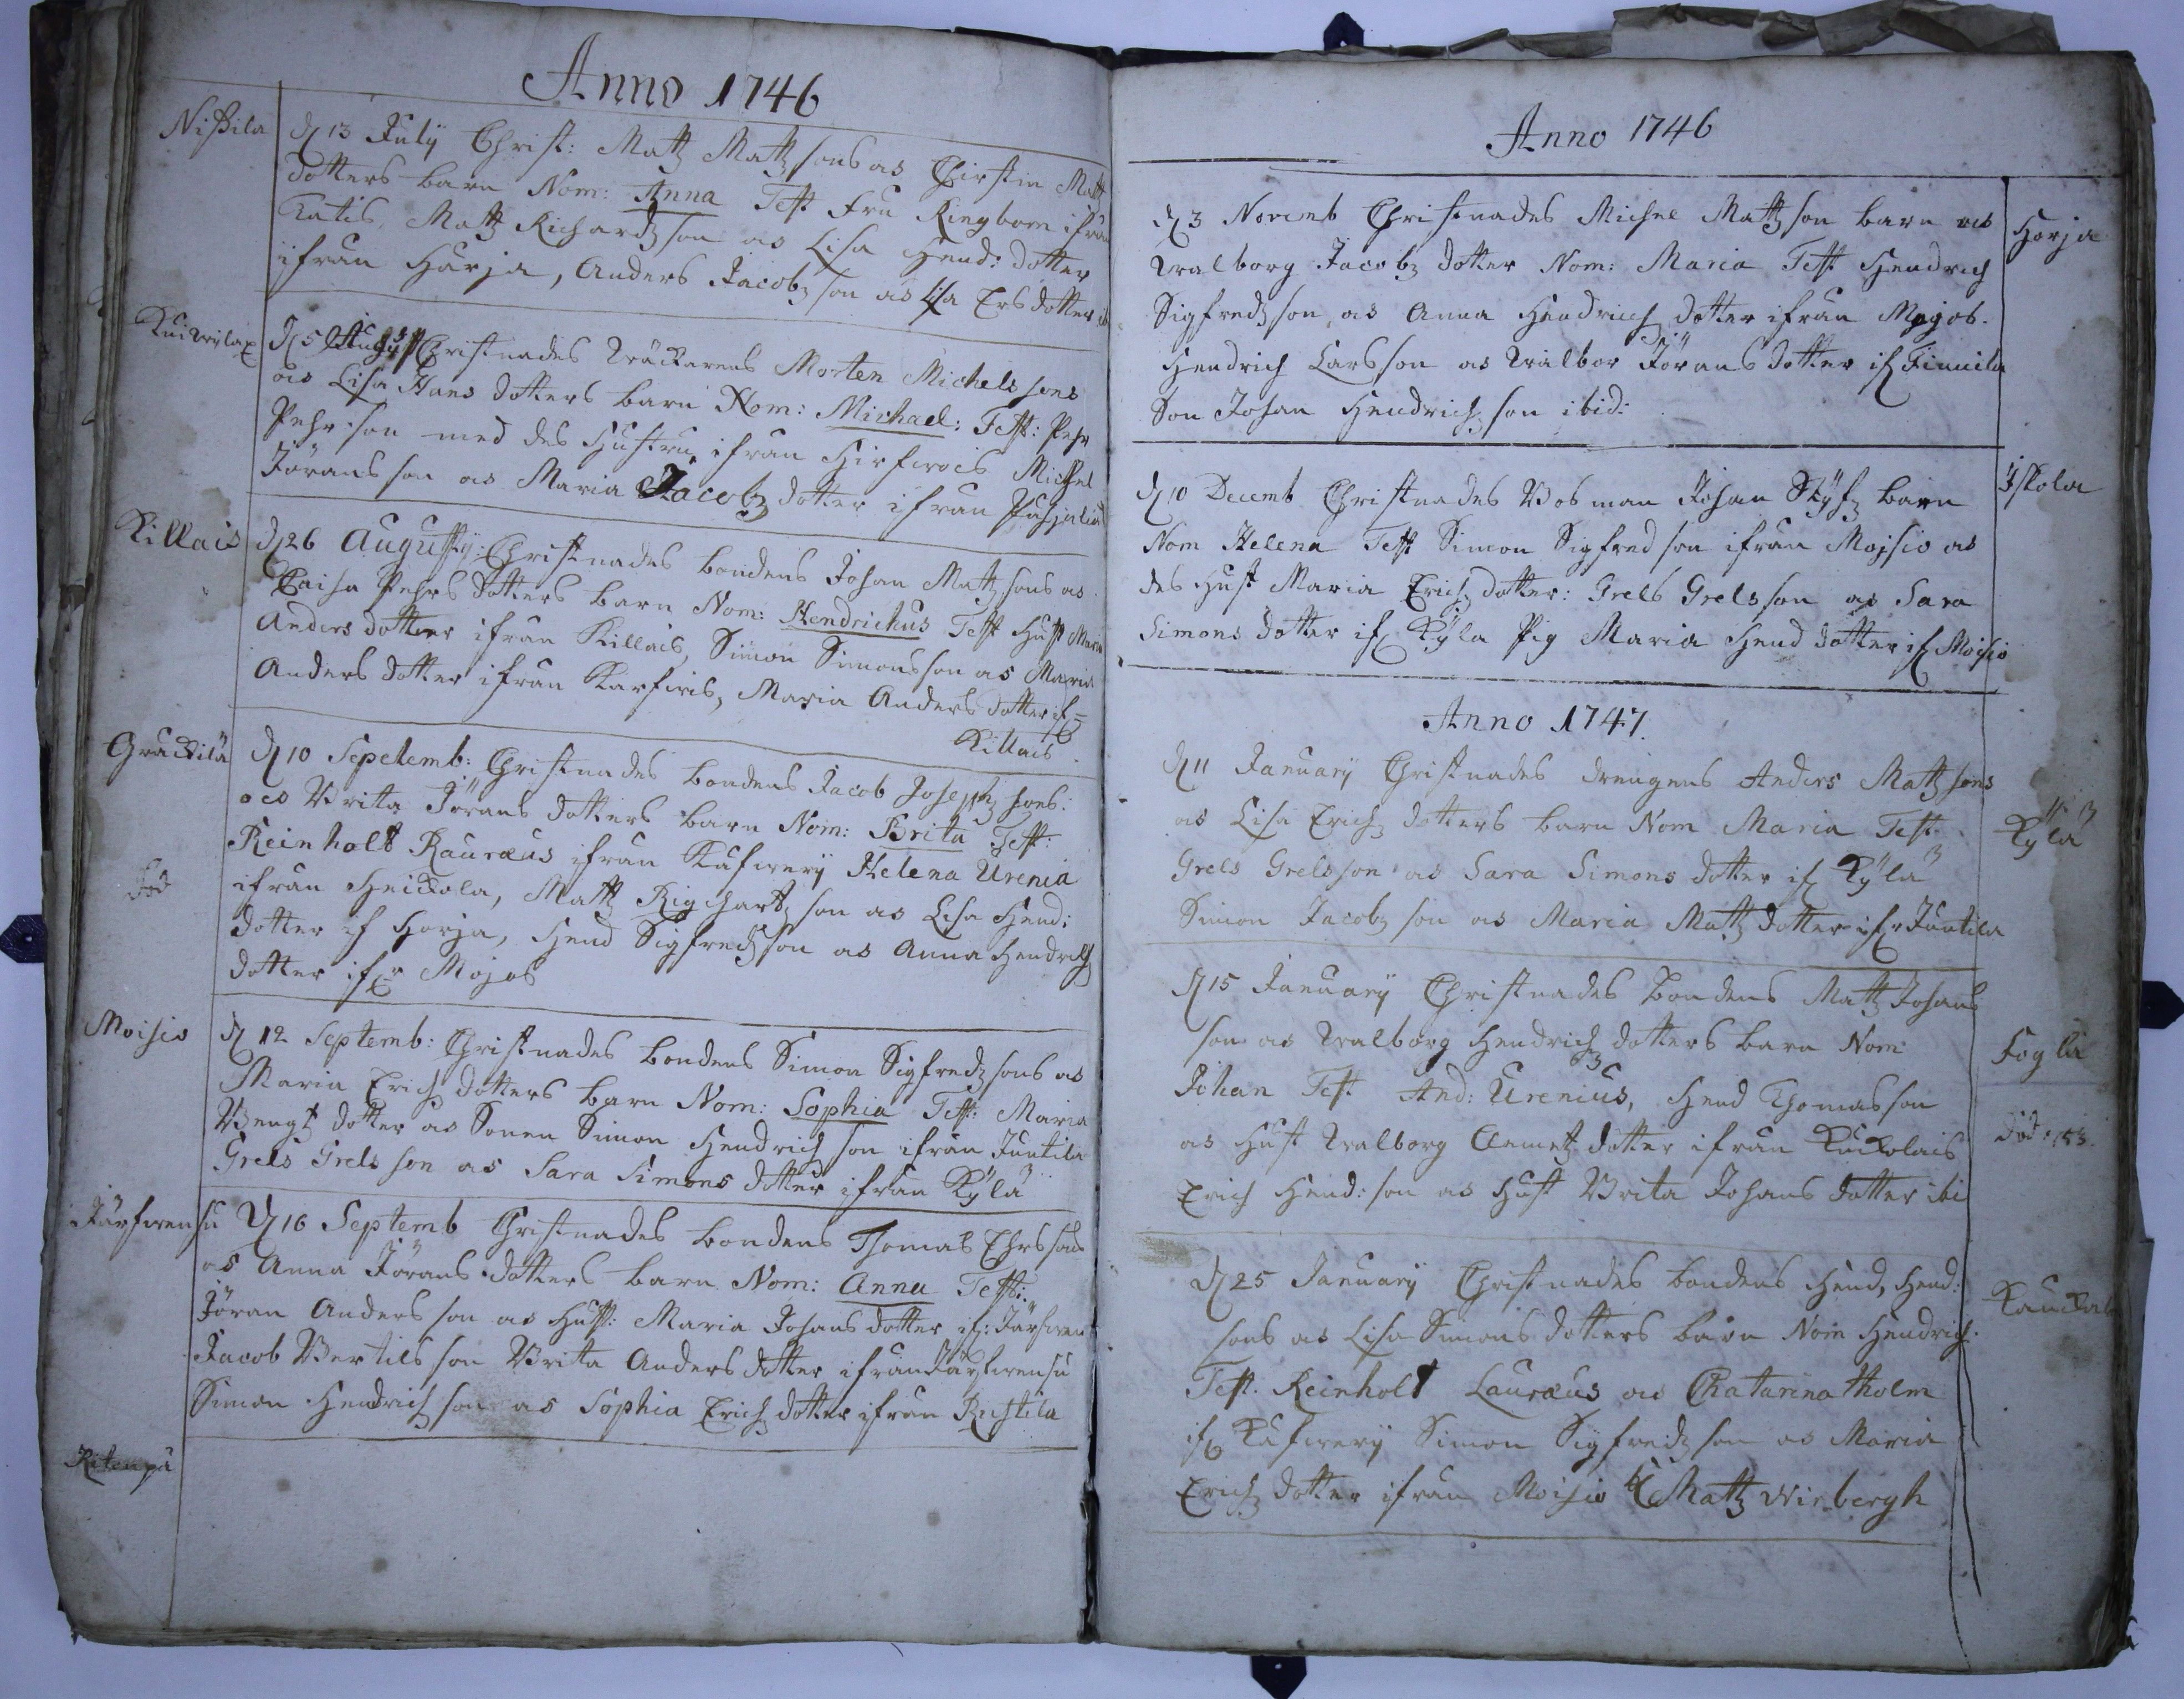 Anno 1746
Nissila
d 13 July Christ: Matz Matz sons os Chirstin Matz
dotters barn Nom: Anna Test Fru Ringbom ifrån
Katis, Matz Richardz son os Lisa Hend: dotter
ifrån Harja, Anders Jacobz son os Lisa Ersdotter
d 5 Christnades Morten Michels sons
os Lisa Hans dotters barn Nom: Michael: Test: Pehr
Pehrson med des Hustru ifrån Michel
Jörans son os Maria Jacobz dotter ifrån
Killais
d 26 Augusty: Christnades bondens Johan Matz sons os
Caisa Pehrs dotters barn Nom: Hendrichus Test Hust Maria
Anders dotter ifrån Killais, Simon Simonsson os Maria
Anders dotter ifrån Karfwis, Maria Anders dotter if
Killais
d 10 Sepetemb: Christnades bondens Jacob Josephz sons:
os Brita Jörans dotters barn Nom: Brita Test:
Reinholt Lauræus ifrån Kåfwery Helena Urenia
ifrån Heickola, Matz Righartz son os Lisa Hend:
dotter if Horja, Hend Sigfredzson os Anna Hendrich
dotter ifr Mojos
Död
Moisio
d 12 Septemb: Christnades bondens Simon Sigfredz sons os
Maria Erichz dotters barn Nom: Sophia Test: Maria
Bengt dotter os Sonen Simon Hendrichz son ifrån Juntila
Grels Grels son os Sara Simons dotter ifrån Kylä
Järfwensu
d 16 Septemb Christnades bondens Thomas Ehrs sons
os Anna Jörans dotters barn Nom: Anna Test:
Jöran Anders son os Hust: Maria Johans dotter if: Järfwen
Jacob Bertils son Brita Anders dotter ifrån Järfwensu
Simon Hendrich son os Sophia Erichz dotter ifrån Rustila
Anno 1746
d 3 Novemb Christnades Michel Matz son barn os
Walborg Jacobz dotter Nom: Maria Test Hendrich
Sigfredz son, os Anna Hendrich dotter ifrån Mojos.
Hendrich Larsson os Walbor Jörans dotter if Finnila
Son Johan Hendrich son ibid:
Horja
d 10 Decemb Christnades Bosman Johan Styfz barn
Nom Helena Test Simon Sigfred son ifrån Mojsio os
des Hust Maria Erichz dotter: Grels Grelsson os Sara
Simons dotter if Kyla Pig Maria Hend dotter if Moisio
Anno 1747.
d 11 January Christnades drengens Anders Matz sons
os Lisa Erichz dotters barn Nom Maria Test.
Grels Grelsson os Sara Simons dotter if Kylä
Simon Jacobz son os Maria Matz dotter ifr Juntila
Kylä
d 15 January Christnades bondens Matz Johans
son os Walborg Hendrich dotters barn Nom
Johan Test And: Urenius, Hend Thomasson
os Hust Walborg Clemetz dotter ifrån Kuckolais
Erich Hend: son os Hust Brita Johans dotter ibi
Foglä
d 25 January Christnades bondens Hend, Hend:
sons os Lisa Simons dotters barn Nom Hendrich.
Test. Reinholt Lauræus os Chatarina tholm
if Kåfwery Simon Sigfredz son os Maria
Erichz dotter ifrån Moisio Matz Wirbergh